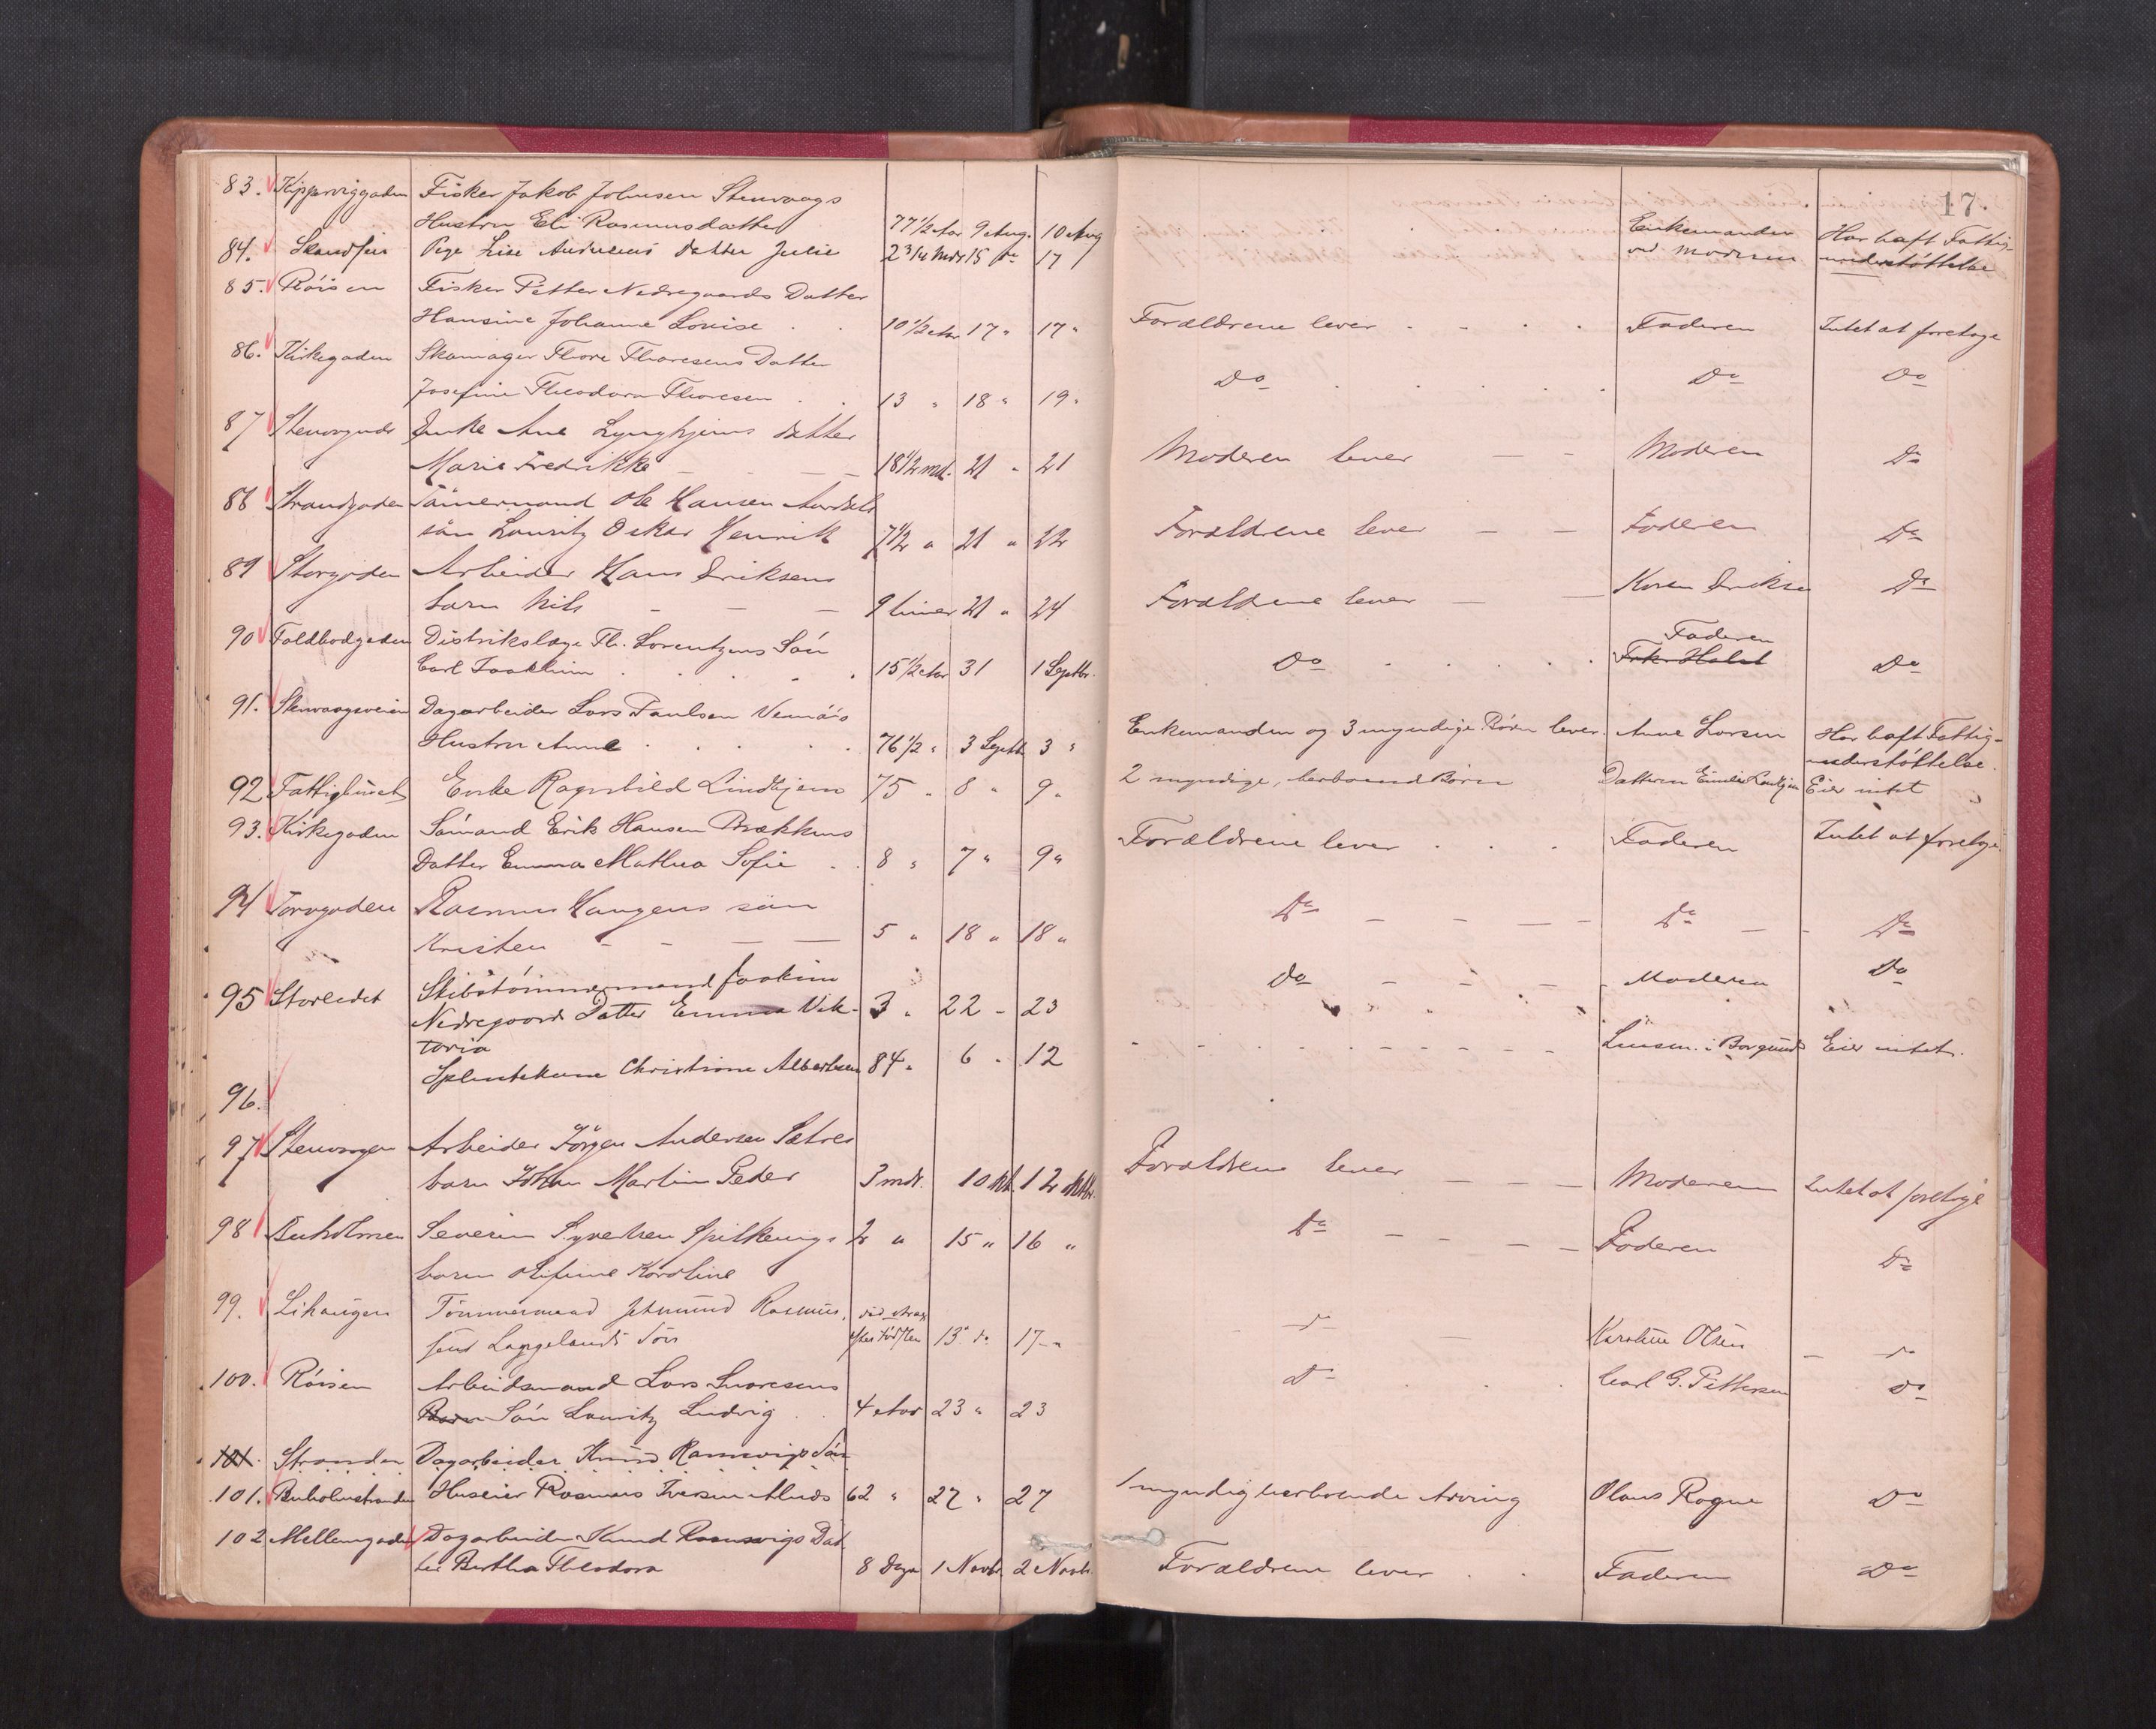 17.
83. Kipperviggaden Fisker Jakob Johnsen Stenvaags
Hustru Eli Rasmusdatter 77 1/2 Aar 9 Aug. 10 Aug Enkemanden Har haft Fattig-
understøttelse
84. Skandsen Pige Lise Andresens Datter Julie 2 3/4 Mdr 15 do 17 ved Moderen
85. Røisen Fisker Petter Nedregaards Datter
Hansine Johanne Lovise . . 10 1/2 Aar 17 " 17 " Forældrene lever . . . . Faderen Intet at foretage
86. Kirkegaden Skomager Thore Thoresens Datter
Josefine Theodora Thoresen . . 13 " 18 " 19 " Do . . . . . Do Do
87 Enke Ane Lynghjems datter
Marie Fredrikke 18 1/2 md. 21 " 21 Moderen lever Moderen Do
88 Strandgaden Tømermand Ole Hansen
søn Lauritz Oskar Henrik 7 1/2 " 21 " 22 Forældrene lever Faderen Do
89 Storgaden Arbeider Hans Eriksens
barn Nils 9 timer 21 " 24 Forældrene lever Do
90 Toldbodgaden Distrikslæge Th. Lorentzens Søn
Carl Joackim 15 1/2 Aar 31 1 Septbr. Do Faderen
Frk. Holst Do
91. Stenvaagsveien Dagarbeider Lars Paulsen
Hustru Anne . . . . . 76 1/2 " 3 Septb 3 " Enkemanden og 3 myndige Børn lever. Anne Larsen Har haft Fattig-
understøttelse.
92 Fattighuset Enke Ragnhild Lindhjem 75 " 8 " 9 " 2 myndige, herboende Børn Datteren Emilie Eier intet
93. Kirkegaden Sømand Erik Hansen Brækkens
Datter Emma Mathea Sofie . . 8 " 7 " 9 " Forældrene lever . . . Faderen Intet at foretage
94 Torvgaden Rasmus Haugens søn
Kristen 5 " 18 " 18 " Do Do Do
95 Storledet Skibstømmermand Joakim
Nedregaard Datter Emma Vik-
toria 3 " 22 " 23 Do Moderen Do
96. Christine Albertsen 84 " 6 " 12 Lensm. i Borgund Eier intet.
97 Stenvaagen Arbeider Jörgen Andersen Sætres
barn Johan Martin Peder 3 mdr. 10 okt. 12 oktbr. Forældrene lever Moderen Intet at foretage
98 Buholmen Severin Syvertsen Spilkevigs 2 " 15 " 16 "
barn Olefine Karoline Do Faderen Do
99. Lihaugen Tømmermand Rasmus.
sens Langelands Søn død strax
efter Fødslen 13 do. 17 " do Karoline Olsen do
100. Røisen Arbeidsmand Lars
Barn Søn Lauritz Ludvig . . 4 Aar 23 " 23 Do . . . Carl G. Pettersen Do
101. Stranden Dagarbeider Knud Ramsvigs Søn
101. Buholmstranden Huseier Rasmus Iversen 62 " 27 " 27 1 myndig herboende Arving Olaus Rogne Do
102 Mellemgaden Dagarbeider Knud Ramsvigs Dat
ter Bertha Theodora 8 Dage 1 Novbr. 2 Novbr. Forældrene lever . . Faderen Do